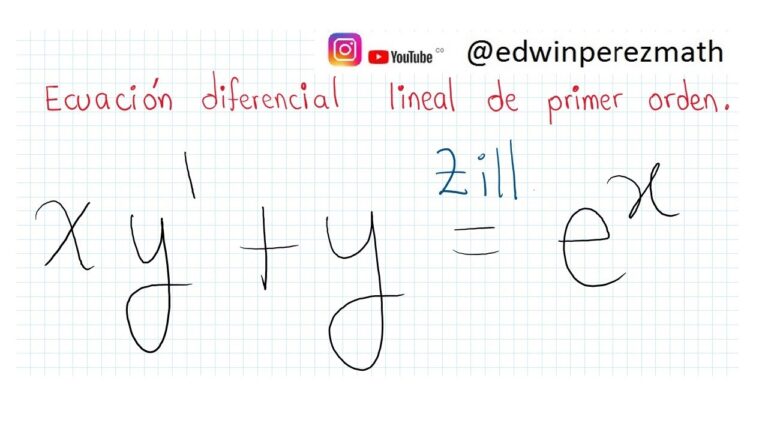 YouTube CO @edwinperezmath
Ecuación diferencial lineal de primer orden.
Zill
xy' + y = eˣ